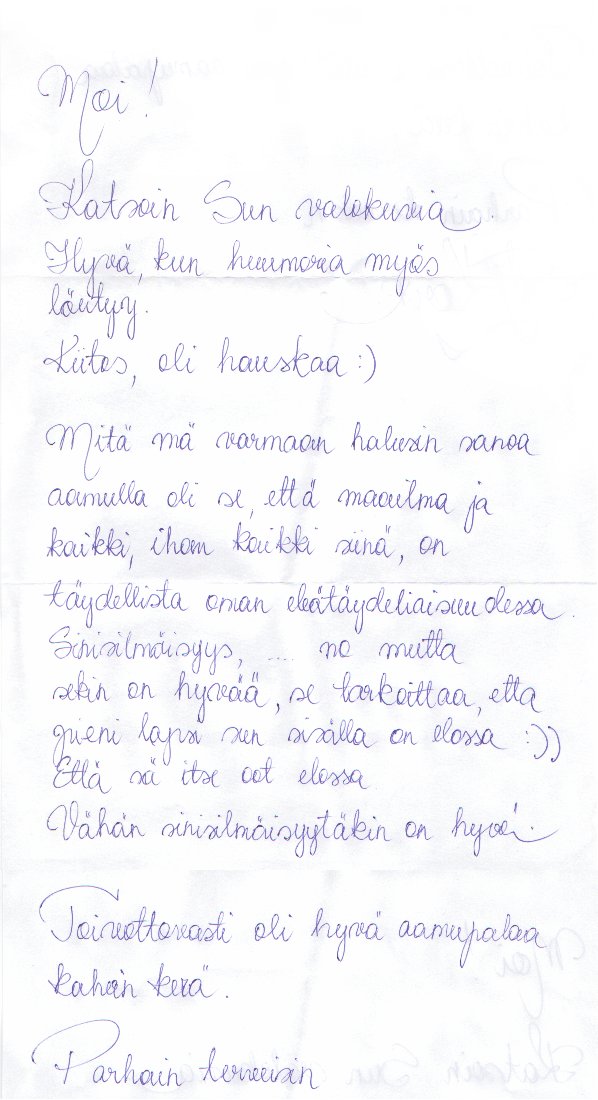 Moi!
Katsoin Sun valokuvia.
Hyvä, kun huumoria myös
löytyy.
Kiitos, oli hauskaa :)
Mitä mä varmaan halusin sanoa
aamulla oli se, että maailma ja
kaikki, ihan kaikki siinä, on
täydellista oman epätäydeliaisuudessa.
Sinisilmäisyys, .... no mutta
sekin on hyvää, se tarkoittaa, etta
pieni lapsi sun sisälla on elossa :))
Että sä itse oot elossa
Vähän sinisilmäisyytäkin on hyvä.
Toivottavasti oli hyvä aamupalaa
kahvin kera.
Parhain terveisin